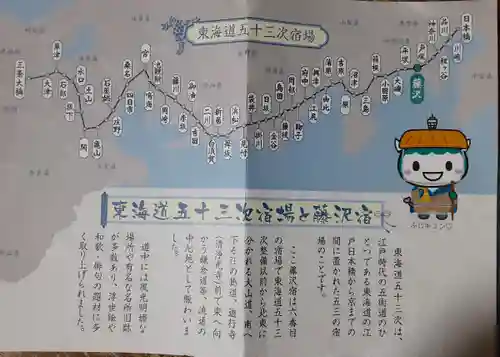 東海道五十三次宿場
日本橋
品川
川崎
神奈川
程ヶ谷
戸塚
藤沢
平塚
大磯
小田原
箱根
三島
沼津
原
吉原
蒲原
由比
興津
江尻
府中
鞠子
岡部
藤枝
島田
金谷
日坂
掛川
袋井
見付
浜松
舞坂
新居
白須賀
二川
吉田
御油
赤坂
藤川
岡崎
鳴海
宮
桑名
四日市
石薬師
庄野
亀山
関
坂下
土山
水口
石部
草津
大津
三条大橋
ふじキュン♡
東海道五十三次宿場と藤沢宿
東海道五十三次は、
江戸時代の五街道のひ
とつである東海道の江
戸日本橋から京までの
間に置かれた五三の宿
場のことです。
ここ藤沢宿は六番目
の宿場で東海道五十三
次整備以前から北東に
分かれる大山道、南へ
下る江の島道、遊行寺
(清浄光寺)前で東へ向
かう鎌倉道等、流通の
中心地として賑わいま
した。
道中には風光明媚な
場所や有名な名所旧跡
が多数あり、浮世絵や
和歌・俳句の題材に多
く取り上げられました。